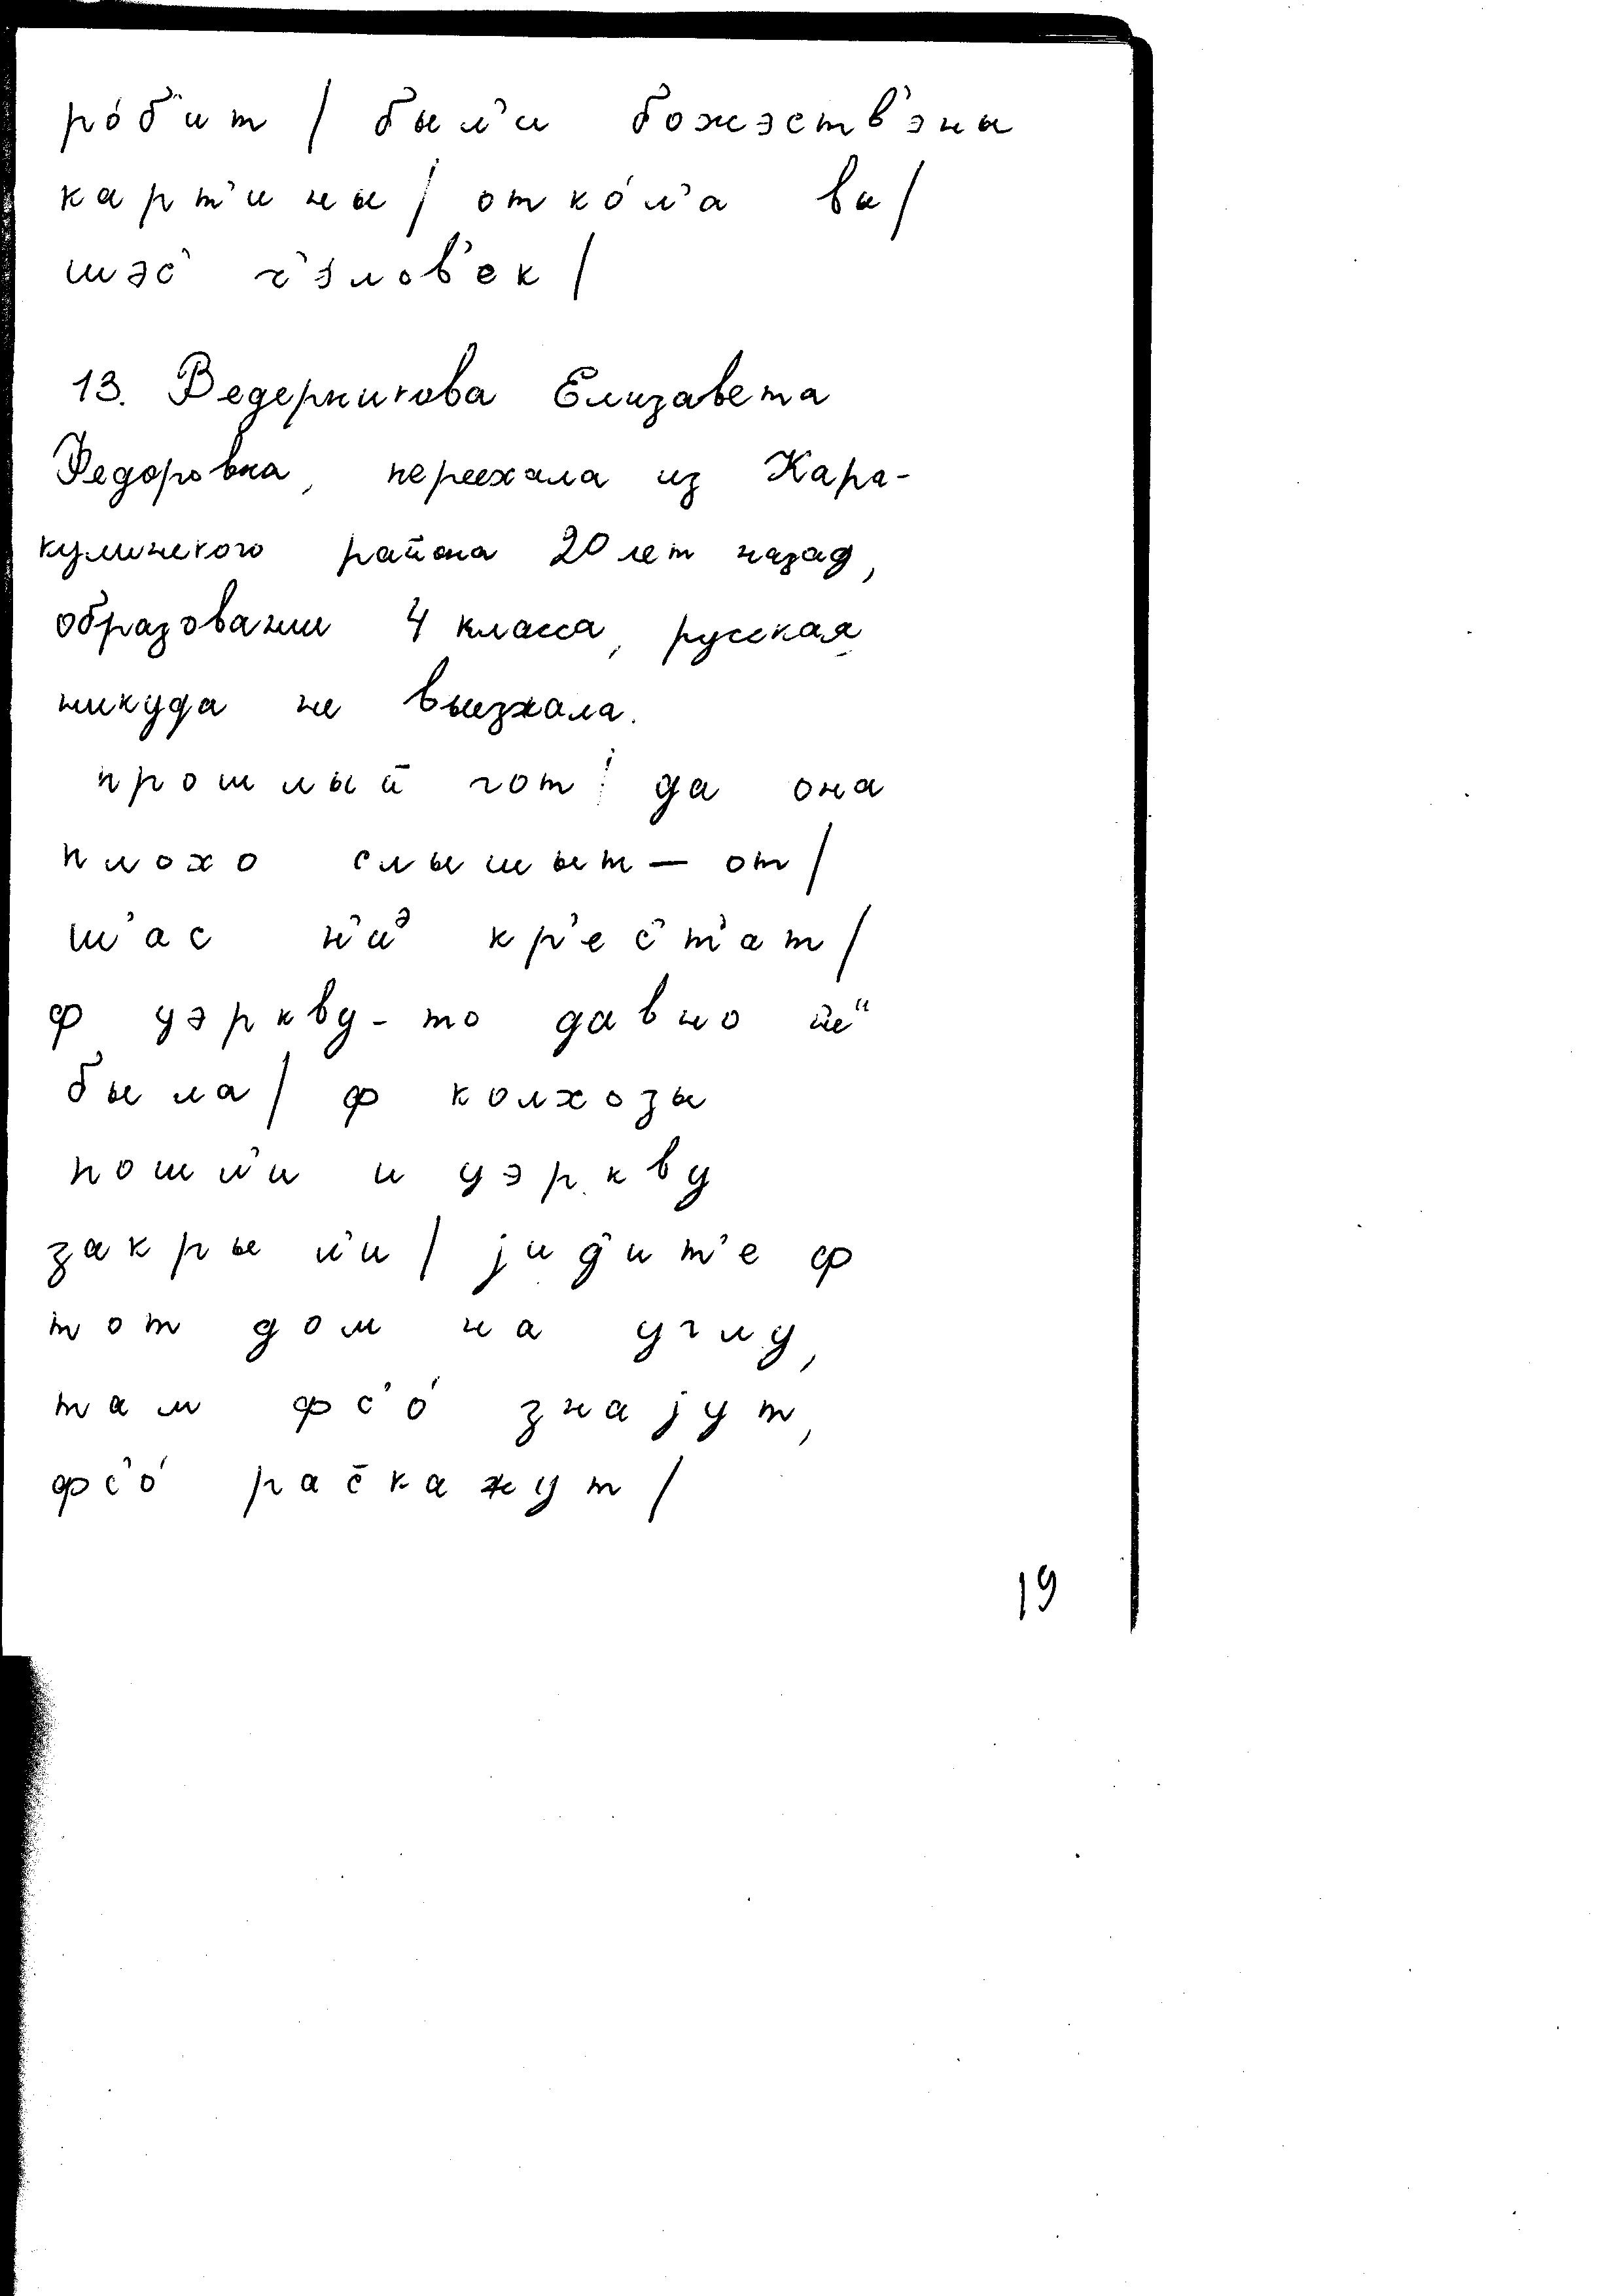 ро́б'ит / был'и божэств'эны
карт'ины / отко́л'а вы /
шэс' ч'э́лов'ек /
13. Ведерникова Елизавета
Федоровна, переехала из Кара-
кулинского района 20 лет назад,
образование 4 класса, русская,
никуда не выезжала.
прошлый гот / да она
плохо слышыт – от /
ш'ас н'иᵊ кр'ес'т'ат /
ф цэркву-то давно
была / ф колхозы
пошл'и и цэркву
закрыл'и / jид'ит'е ф
тот дом на углу,
там фс'о́ знаjут,
фс'о́ рас̄кажут /
19